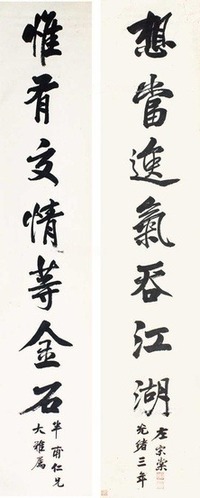 想當逸氣吞江湖
左宗棠
光緒三年
甫仁兄
大雅屬
惟有交情等金石